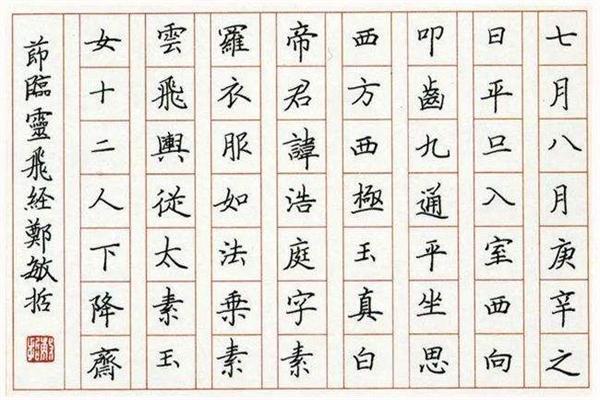 七月八月庚辛之
日平旦入室西向
叩齒九通平坐思
西方西極玉真白
帝君諱浩庭字素
羅衣服如法乗素
雲飛輿從太素玉
女十二人下降齋
節臨靈飛经鄭敏哲